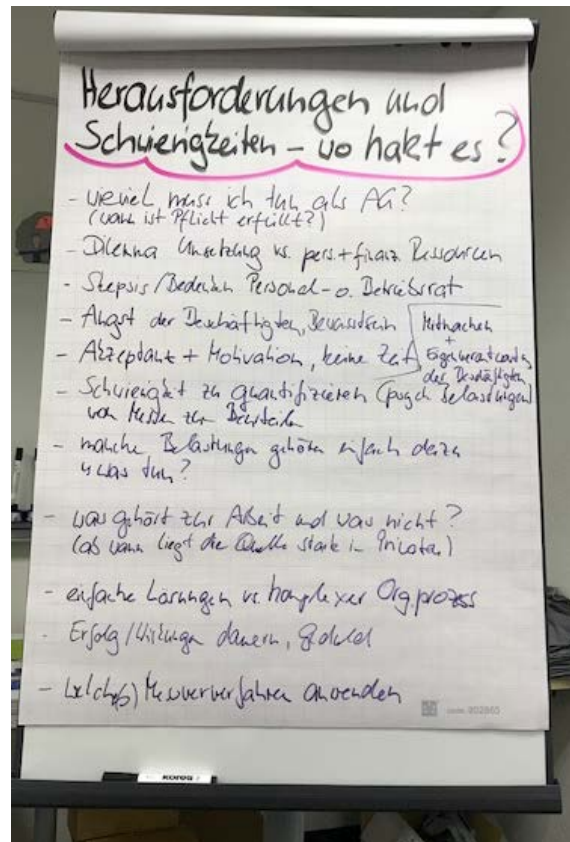 Herausforderungen und
Schwierigkeiten – wo hakt es?
- wieviel muss ich tun als AG?
(wann ist Pflicht erfüllt?)
- Dilemma Umsetzung vs. pers. + finanz. Ressourcen
- Skepsis/Bedenken Personal- o. Betriebsrat
- Angst der Beschäftigten, Bewusstsein
- Akzeptanz + Motivation, keine Zeit
Mitmachen
+
Eigenverantwortung
der Beschäftigten
- Schwierigkeit zu quantifizieren (psych Belastungen)
vom Messen zum Beurteilen
- manche Belastungen gehören einfach dazu
was tun?
- was gehört zur Arbeit und was nicht?
(ab wann liegt die Quelle stark im Privaten)
- einfache Lösungen vs. komplexer Org.prozess
- Erfolg/Wirkungen dauern, Geduld
- Welch(es) Messverfahren anwenden
kores